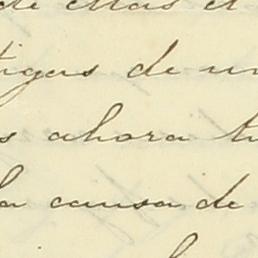 de ellas el
tigas de un
s ahora tu
la causa de